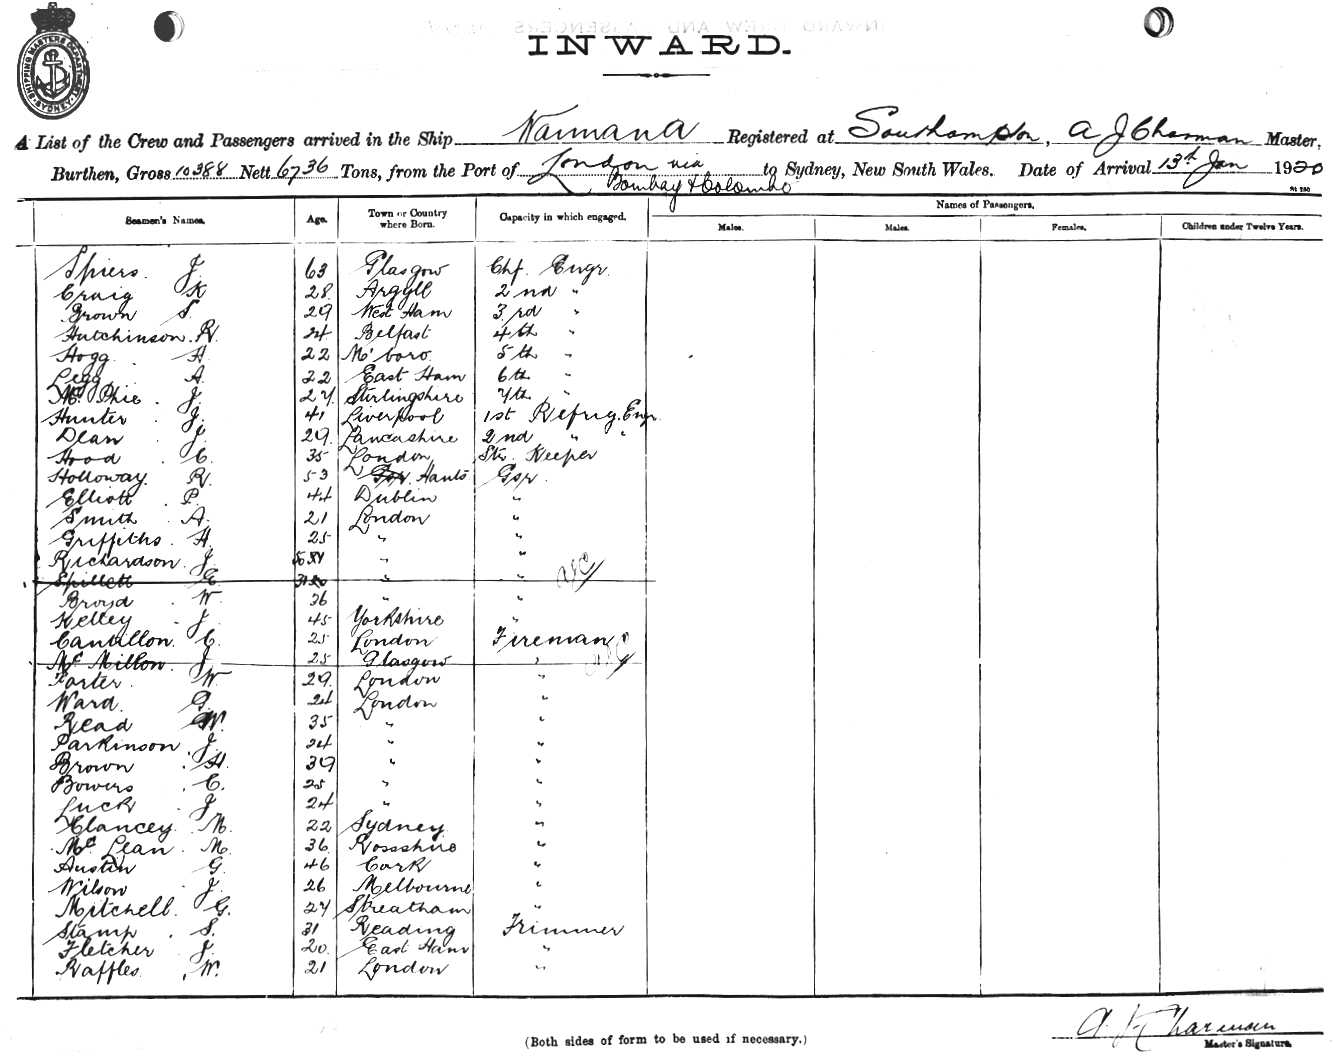 SHIPPING MASTERS DEPARTMENT SYDNEY
INWARD.
A List of the Crew and Passengers arrived in the Ship Waimana Registered at Southampton, A J Charman Master,
Burthen, Gross 10388 Nett 6736 Tons, from the Port of London via Bombay & Colombo to Sydney, New South Wales. Date of Arrival 13th Jan 1920
Seamen's Names. Age. Town or Country where Born. Capacity in which engaged. Names of Passengers.
Males. Males. Females. Children under Twelve Years.
Spiers. J. 63 Glasgow Chf. Engr.
Craig K 28. Argyll 2nd "
Brown S. 29 West Ham 3rd "
Hutchinson. R. 24 Belfast 4th "
Hogg. H. 22 M'boro. 5th "
Legg A. 22 East Ham 6th "
McPhie. J. 27. Stirlingshire 7th "
Hunter J. 41 Liverpool 1st Refrig. Engr.
Dean J. 29. Lancashire 2nd " "
Hood C. 35 London Str. Keeper
Holloway. R. 53 Hants Gsr.
Elliott P. 44 Dublin "
Smith A. 21 London "
Griffiths H. 25 " "
Richardson. J. " "
Spillett G. " "
Broyd W. 36 " "
Kelley J. 45 Yorkshire "
Cantillon. C. 25 London Fireman
McMillon. J. 25 Glasgow "
Porter. W. 29. London "
Ward. G. 24 London "
Read W. 35 " "
Parkinson J. 24 " "
Brown H. 39 " "
Bowers C. 25 " "
Luck J. 24 " "
Clancey M. 22 Sydney "
McLean M. 36 Rossshire "
Austin G. 46 Cork "
Wilson J. 26 Melbourne "
Mitchell. G. 27 Streatham "
Stamp S. 31 Reading Trimmer
Fletcher J. 20. East Ham "
Raffles W. 21 London "
(Both sides of form to be used if necessary.)
A J Charman
Master's Signature.